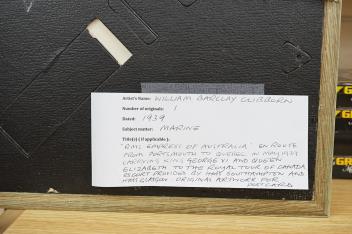 Artist's Name: WILLIAM BARCLAY CLIBBORN
Number of originals: 1
Dated: 1939
Subject matter: MARINE
Title(s) ( if applicable ):
'RMS EMPRESS OF AUSTRALIA' EN ROUTE
FROM PORTSMOUTH TO QUEBEC IN MAY 1939
CARRYING KING GEORGE VI AND QUEEN
ELIZABETH TO THE ROYAL TOUR OF CANADA
ESCORT PROVIDED BY HMS SOUTHAMPTON AND
HMS GLASGOW ORIGINAL ARTWORK FOR
POSTCARD